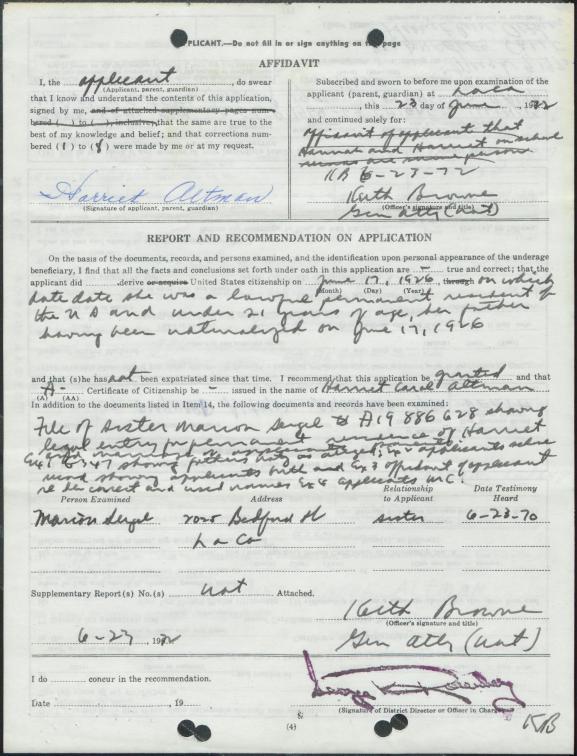 APPLICANT.—Do not fill in or sign anything on this page
AFFIDAVIT
I, the applicant, do swear
(Applicant, parent, guardian)
that I know and understand the contents of this application,
signed by me, and of attached supplementary pages num-
bered ( ) to ( ), inclusive, that the same are true to the
best of my knowledge and belief; and that corrections num-
bered (1) to (8) were made by me or at my request.
Harriet Altman
(Signature of applicant, parent, guardian)
Subscribed and sworn to before me upon examination of the
applicant (parent, guardian) at Laca
, this 23 day of June, 1972
and continued solely for:
Affidavit of applicant that
Hannah and Harriet on school
records are same person
KB 6-23-72
Keith Browne
(Officer's signature and title)
Gen Atty (Nat)
REPORT AND RECOMMENDATION ON APPLICATION
On the basis of the documents, records, and persons examined, and the identification upon personal appearance of the underage
beneficiary, I find that all the facts and conclusions set forth under oath in this application are - true and correct; that the
applicant did derive or acquire United States citizenship on June 17, 1926 through on which
(Month) (Day) (Year)
date she was a lawful permanent resident of
the US and under 21 years of age, her father
having been naturalized on June 17, 1926
and that (s)he has not been expatriated since that time. I recommend that this application be granted and that
A- Certificate of Citizenship be - issued in the name of Harriet Carol Altman
(A) (AA)
In addition to the documents listed in Item 14, the following documents and records have been examined:
File of sister Marion Seigel A19 886 628 showing
legal entry for permanent residence of Harriet
showing applicants birth and Ex 3 affidavit of applicant
and used names Ex 4 applicants MC.
Person Examined
Address
Relationship
to Applicant
Date Testimony
Heard
Marion Seigel
Bedford St
sister
6-23-70
La Ca
Supplementary Report(s) No.(s) not Attached.
Keith Browne
(Officer's signature and title)
6-23, 1972
Gen Atty (Nat)
I do concur in the recommendation.
Date , 19
George K. Rosenberg
(Signature of District Director or Officer in Charge)
(4)
KB